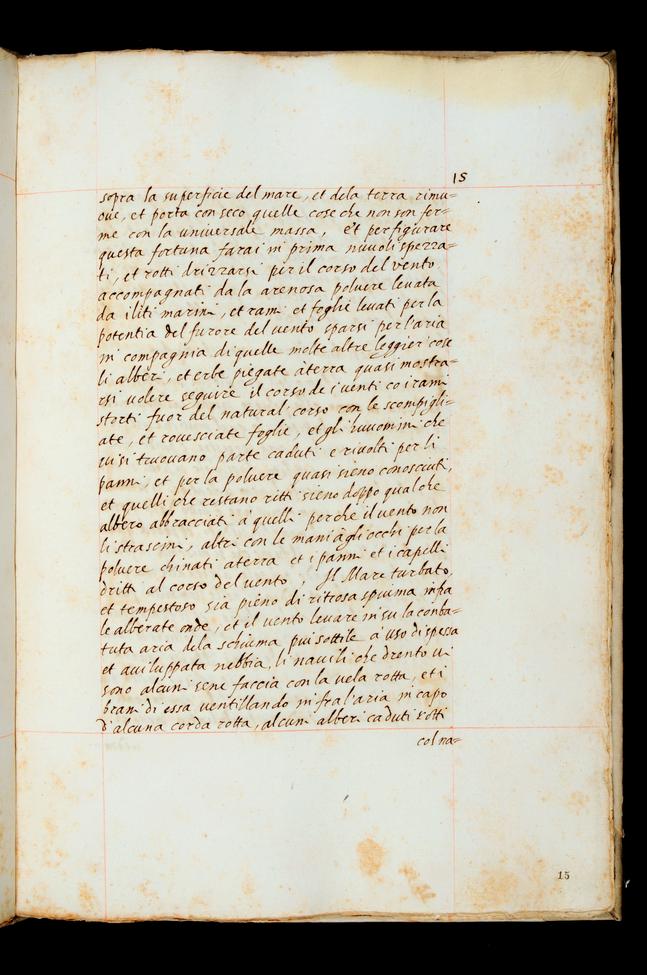 15
sopra la superficie del mare, et dela terra rimu=
oue, et porta con seco quelle cose che non son fer=
me con la universale massa, et per figurare
questa fortuna farai in prima nuuoli spezza=
ti, et rotti drizzarsi per il corso del vento
accompagnati da la arenosa poluere leuata
da i liti marini, et rami et foglie leuati per la
potentia del furore del vento sparsi per l'aria
in compagnia di quelle molte altre leggier cose
li alberi, et erbe piegate à terra quasi mostra=
rsi uolere seguire il corso de i venti co i rami
storti fuor del natural corso con le scompigli=
ate, et rouesciate foglie, et gli huuomini che
iui si truouano parte caduti e riuolti per li
panni, et per la poluere quasi sieno conosciuti,
et quelli che restano ritti sieno doppo qualche
albero abbracciati à quelli perche il vento non
li strascini, altri con le mani àgli occhi per la
poluere chinati aterra et i panni et i capelli
dritti al corso del vento, Il Mare turbato,
et tempestoso sia pieno di ritrosa spiuma infra
le alberate onde, et il vento leuare in su la conba=
tuta aria dela schiuma piu sottile à uso di spessa
et auiluppata nebbia, li nauili che drento ui
sono alcuni sene faccia con la vela rotta, et i
brani di essa ventillando infra l'aria in capo
d'alcuna corda rotta, alcuni alberi caduti rotti
col na=
15